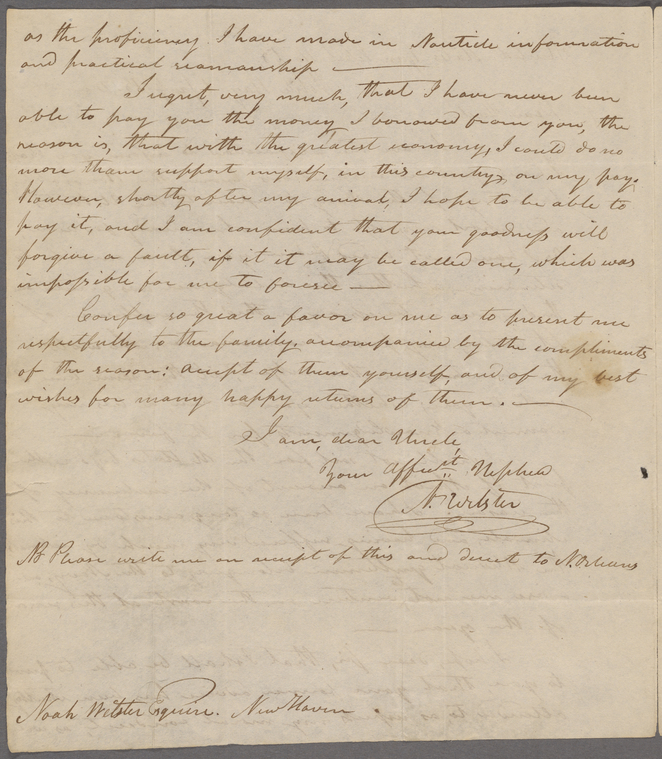 as the proficiency I have made in Nauticle information
and practical seamanship —
I regret, very much, that I have never been
able to pay you the money I borrowed from you, the
reason is, that with the greatest economy, I could do no
more tham support myself, in this country, on my pay.
However, shortly after my arrival, I hope to be able to
pay it, and I am confident that your goodness will
forgive a fault, if it it may be called one, which was
impossible for me to foresee —
Confer so great a favor on me as to present me
respectfully to the family, accompanied by the compliments
of the season: accept of them yourself, and of my best
wishes for many happy returns of them. —
I am, dear Uncle,
Your Affect Nephew
N. Webster
NB Please write me on receipt of this and direct to N. Orleans
Noah Webster Esquire. New Haven